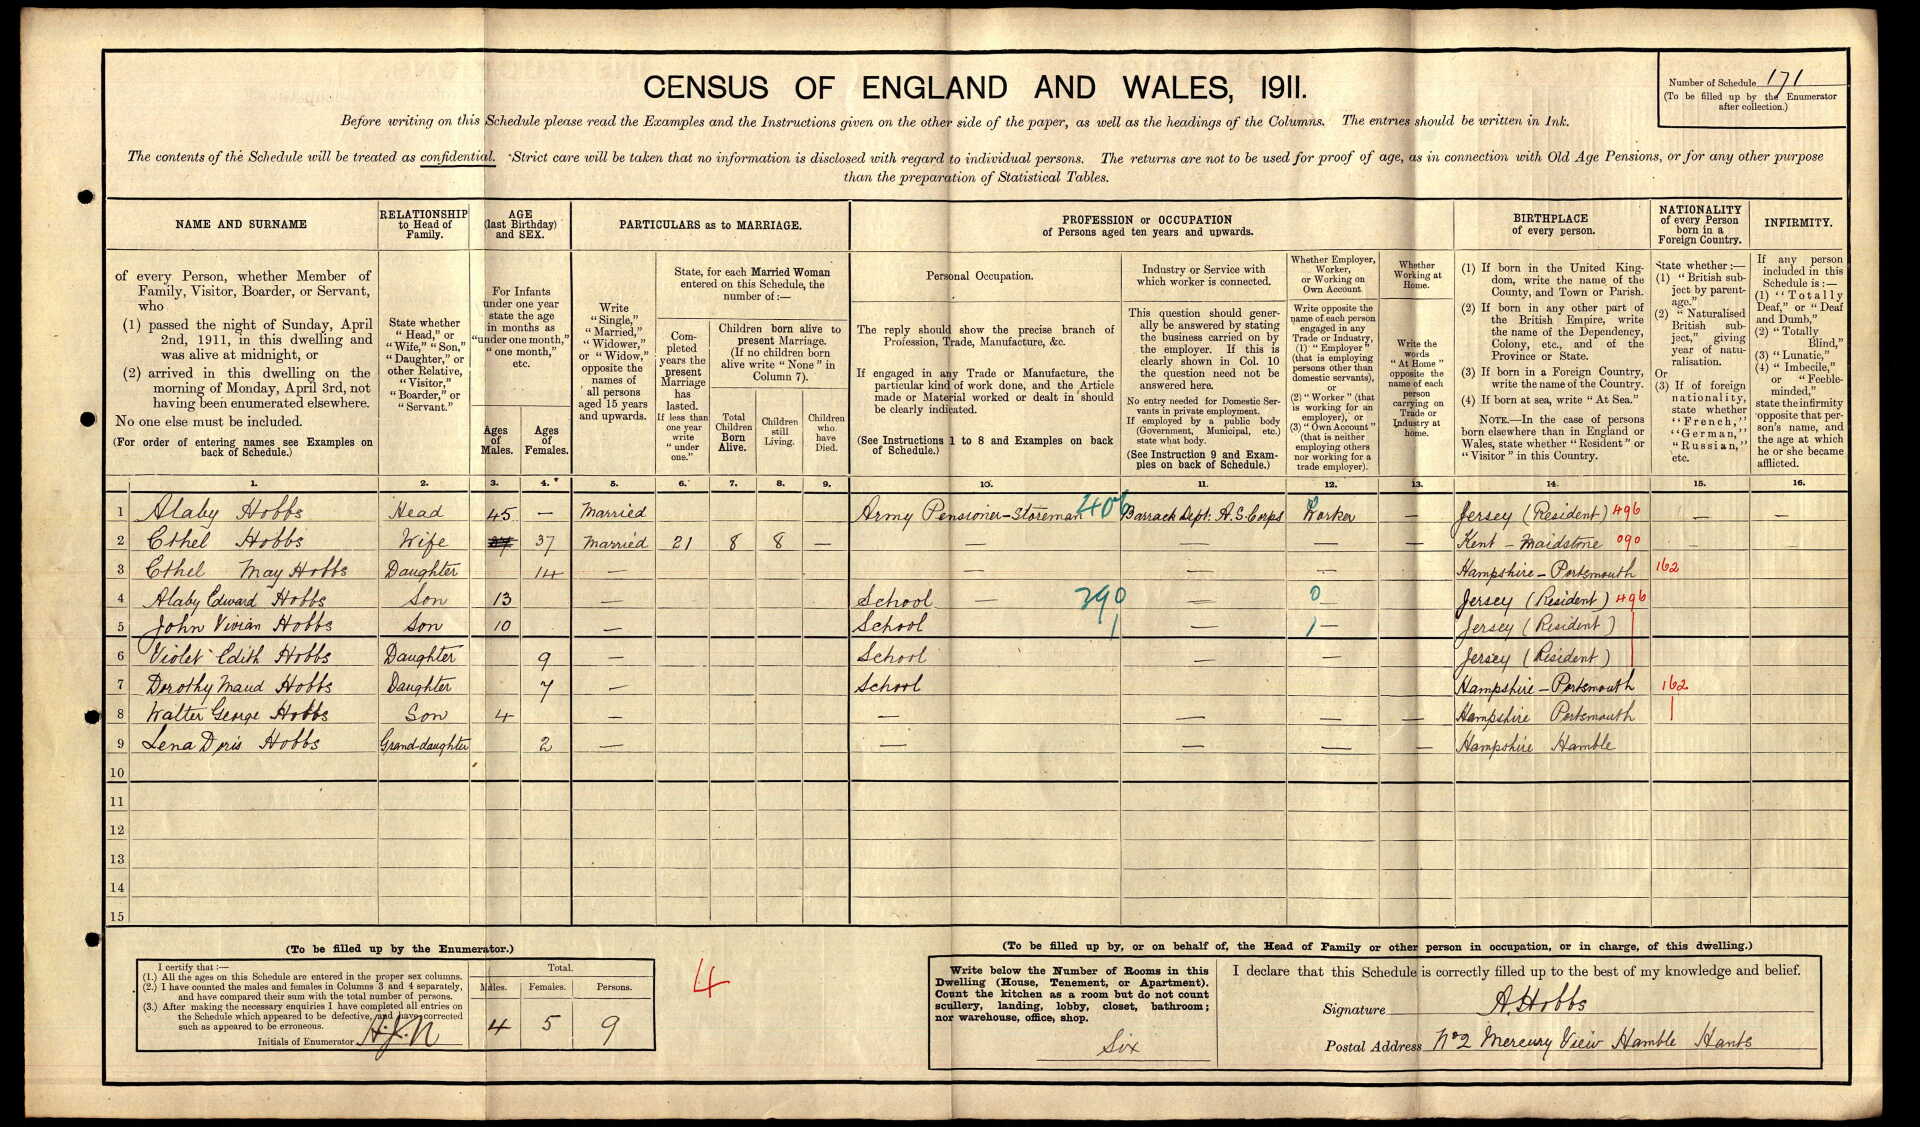 CENSUS OF ENGLAND AND WALES, 1911.
Number of Schedule 171
(To be filled up by the Enumerator
after collection.)
Before writing on this Schedule please read the Examples and the Instructions given on the other side of the paper, as well as the headings of the Columns. The entries should be written in Ink.
The contents of the Schedule will be treated as confidential. Strict care will be taken that no information is disclosed with regard to individual persons. The returns are not to be used for proof of age, as in connection with Old Age Pensions, or for any other purpose
than the preparation of Statistical Tables.
NAME AND SURNAME
of every Person, whether Member of
Family, Visitor, Boarder, or Servant,
who
(1) passed the night of Sunday, April
2nd, 1911, in this dwelling and
was alive at midnight, or
(2) arrived in this dwelling on the
morning of Monday, April 3rd, not
having been enumerated elsewhere.
No one else must be included.
(For order of entering names see Examples on
back of Schedule.)
RELATIONSHIP
to Head of
Family.
State whether
"Head," or
"Wife," "Son,"
"Daughter," or
other Relative,
"Visitor,"
"Boarder," or
"Servant."
AGE
(last Birthday)
and SEX.
For Infants
under one year
state the age
in months as
"under one month,"
"one month,"
etc.
Ages
of
Males.
Ages
of
Females.
PARTICULARS as to MARRIAGE.
Write
"Single,"
"Married,"
"Widower,"
or "Widow,"
opposite the
names of
all persons
aged 15 years
and upwards.
State, for each Married Woman
entered on this Schedule, the
number of:—
Completed
years the
present
Marriage
has
lasted.
If less than
one year
write
"under
one."
Children born alive to
present Marriage.
(If no children born
alive write "None" in
Column 7).
Total
Children
Born
Alive.
Children
still
Living.
Children
who
have
Died.
PROFESSION or OCCUPATION
of Persons aged ten years and upwards.
Personal Occupation.
The reply should show the precise branch of
Profession, Trade, Manufacture, &c.
If engaged in any Trade or Manufacture, the
particular kind of work done, and the Article
made or Material worked or dealt in should
be clearly indicated.
(See Instructions 1 to 8 and Examples on back
of Schedule.)
Industry or Service with
which worker is connected.
This question should generally
be answered by stating
the business carried on by
the employer. If this is
clearly shown in Col. 10
the question need not be
answered here.
No entry needed for Domestic Servants
in private employment.
If employed by a public body
(Government, Municipal, etc.)
state what body.
(See Instruction 9 and Examples
on back of Schedule.)
Whether Employer,
Worker,
or Working on
Own Account
Write opposite the
name of each person
engaged in any
Trade or Industry,
(1) "Employer"
(that is employing
persons other than
domestic servants),
or
(2) "Worker" (that
is working for an
employer), or
(3) "Own Account"
(that is neither
employing others
nor working for a
trade employer).
Whether
Working at
Home.
Write the
words
"At Home"
opposite the
name of each
person
carrying on
Trade or
Industry at
home.
BIRTHPLACE
of every person.
(1) If born in the United Kingdom,
write the name of the
County, and Town or Parish.
(2) If born in any other part of
the British Empire, write
the name of the Dependency,
Colony, etc., and of the
Province or State.
(3) If born in a Foreign Country,
write the name of the Country.
(4) If born at sea, write "At Sea."
NOTE.—In the case of persons
born elsewhere than in England or
Wales, state whether "Resident" or
"Visitor" in this Country.
NATIONALITY
of every Person
born in a
Foreign Country.
State whether:—
(1) "British subject
by parentage."
(2) "Naturalised
British subject,"
giving
year of naturalisation.
Or
(3) If of foreign
nationality,
state whether
"French,"
"German,"
"Russian,"
etc.
INFIRMITY.
If any person
included in this
Schedule is:—
(1) "Totally
Deaf," or "Deaf
and Dumb,"
(2) "Totally
Blind,"
(3) "Lunatic,"
(4) "Imbecile,"
or "Feeble-minded,"
state the infirmity
opposite that person's
name, and
the age at which
he or she became
afflicted.
1. 2. 3. 4. 5. 6. 7. 8. 9. 10. 11. 12. 13. 14. 15. 16.
1 Alaby Hobbs Head 45 — Married Army Pensioner – Storeman 406 Barrack Dept. A. S. Corps Worker — Jersey (Resident) 496 — —
2 Ethel Hobbs Wife 37 37 Married 21 8 8 — — — — — Kent – Maidstone 090 — —
3 Ethel May Hobbs Daughter 14 — — — — Hampshire – Portsmouth 162
4 Alaby Edward Hobbs Son 13 — School — 390 — 0 — Jersey (Resident) 496
5 John Vivian Hobbs Son 10 — School 1 — 1 — Jersey (Resident)
6 Violet Edith Hobbs Daughter 9 — School — — Jersey (Resident)
7 Dorothy Maud Hobbs Daughter 7 — School Hampshire – Portsmouth 162
8 Walter George Hobbs Son 4 — — — — — Hampshire Portsmouth
9 Lena Doris Hobbs Grand-daughter 2 — — — — — Hampshire Hamble
10
11
12
13
14
15
(To be filled up by the Enumerator.)
I certify that:—
(1.) All the ages on this Schedule are entered in the proper sex columns.
(2.) I have counted the males and females in Columns 3 and 4 separately,
and have compared their sum with the total number of persons.
(3.) After making the necessary enquiries I have completed all entries on
the Schedule which appeared to be defective, and have corrected
such as appeared to be erroneous.
Initials of Enumerator
Total.
Males. Females. Persons.
4 5 9
4
(To be filled up by, or on behalf of, the Head of Family or other person in occupation, or in charge, of this dwelling.)
Write below the Number of Rooms in this
Dwelling (House, Tenement, or Apartment).
Count the kitchen as a room but do not count
scullery, landing, lobby, closet, bathroom;
nor warehouse, office, shop.
Six
I declare that this Schedule is correctly filled up to the best of my knowledge and belief.
Signature A. Hobbs
Postal Address No 2 Mercury View Hamble Hants